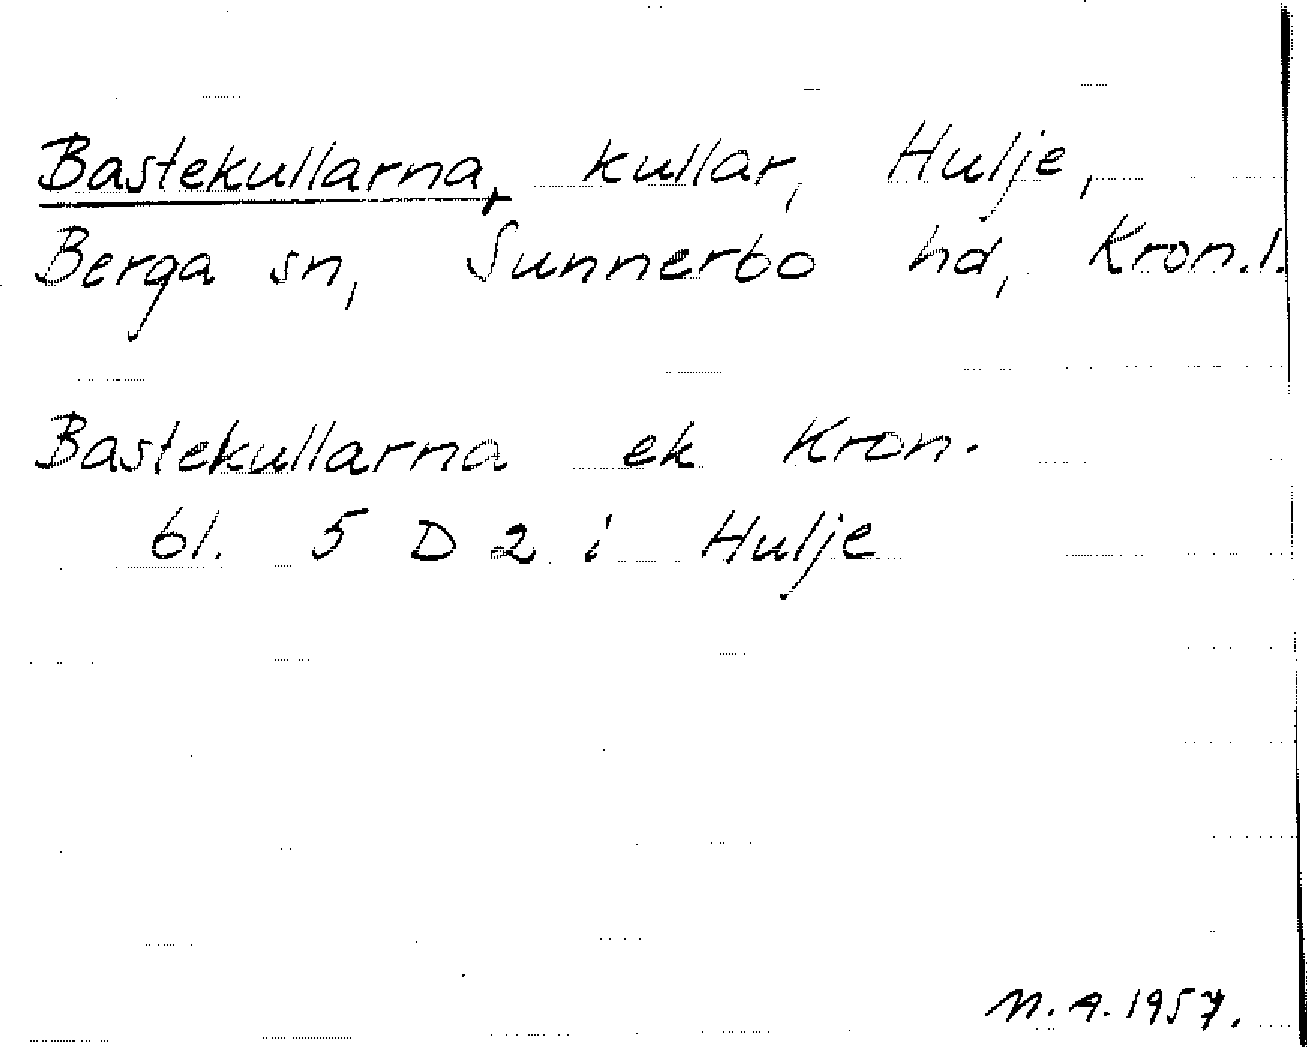 Bastekullarna, kullar, Hulje,
Berga sn, Sunnerbo hd, Kron.l.
Bastekullarna ek Kron.
bl. 5 D 2 i Hulje
N.A. 1957.